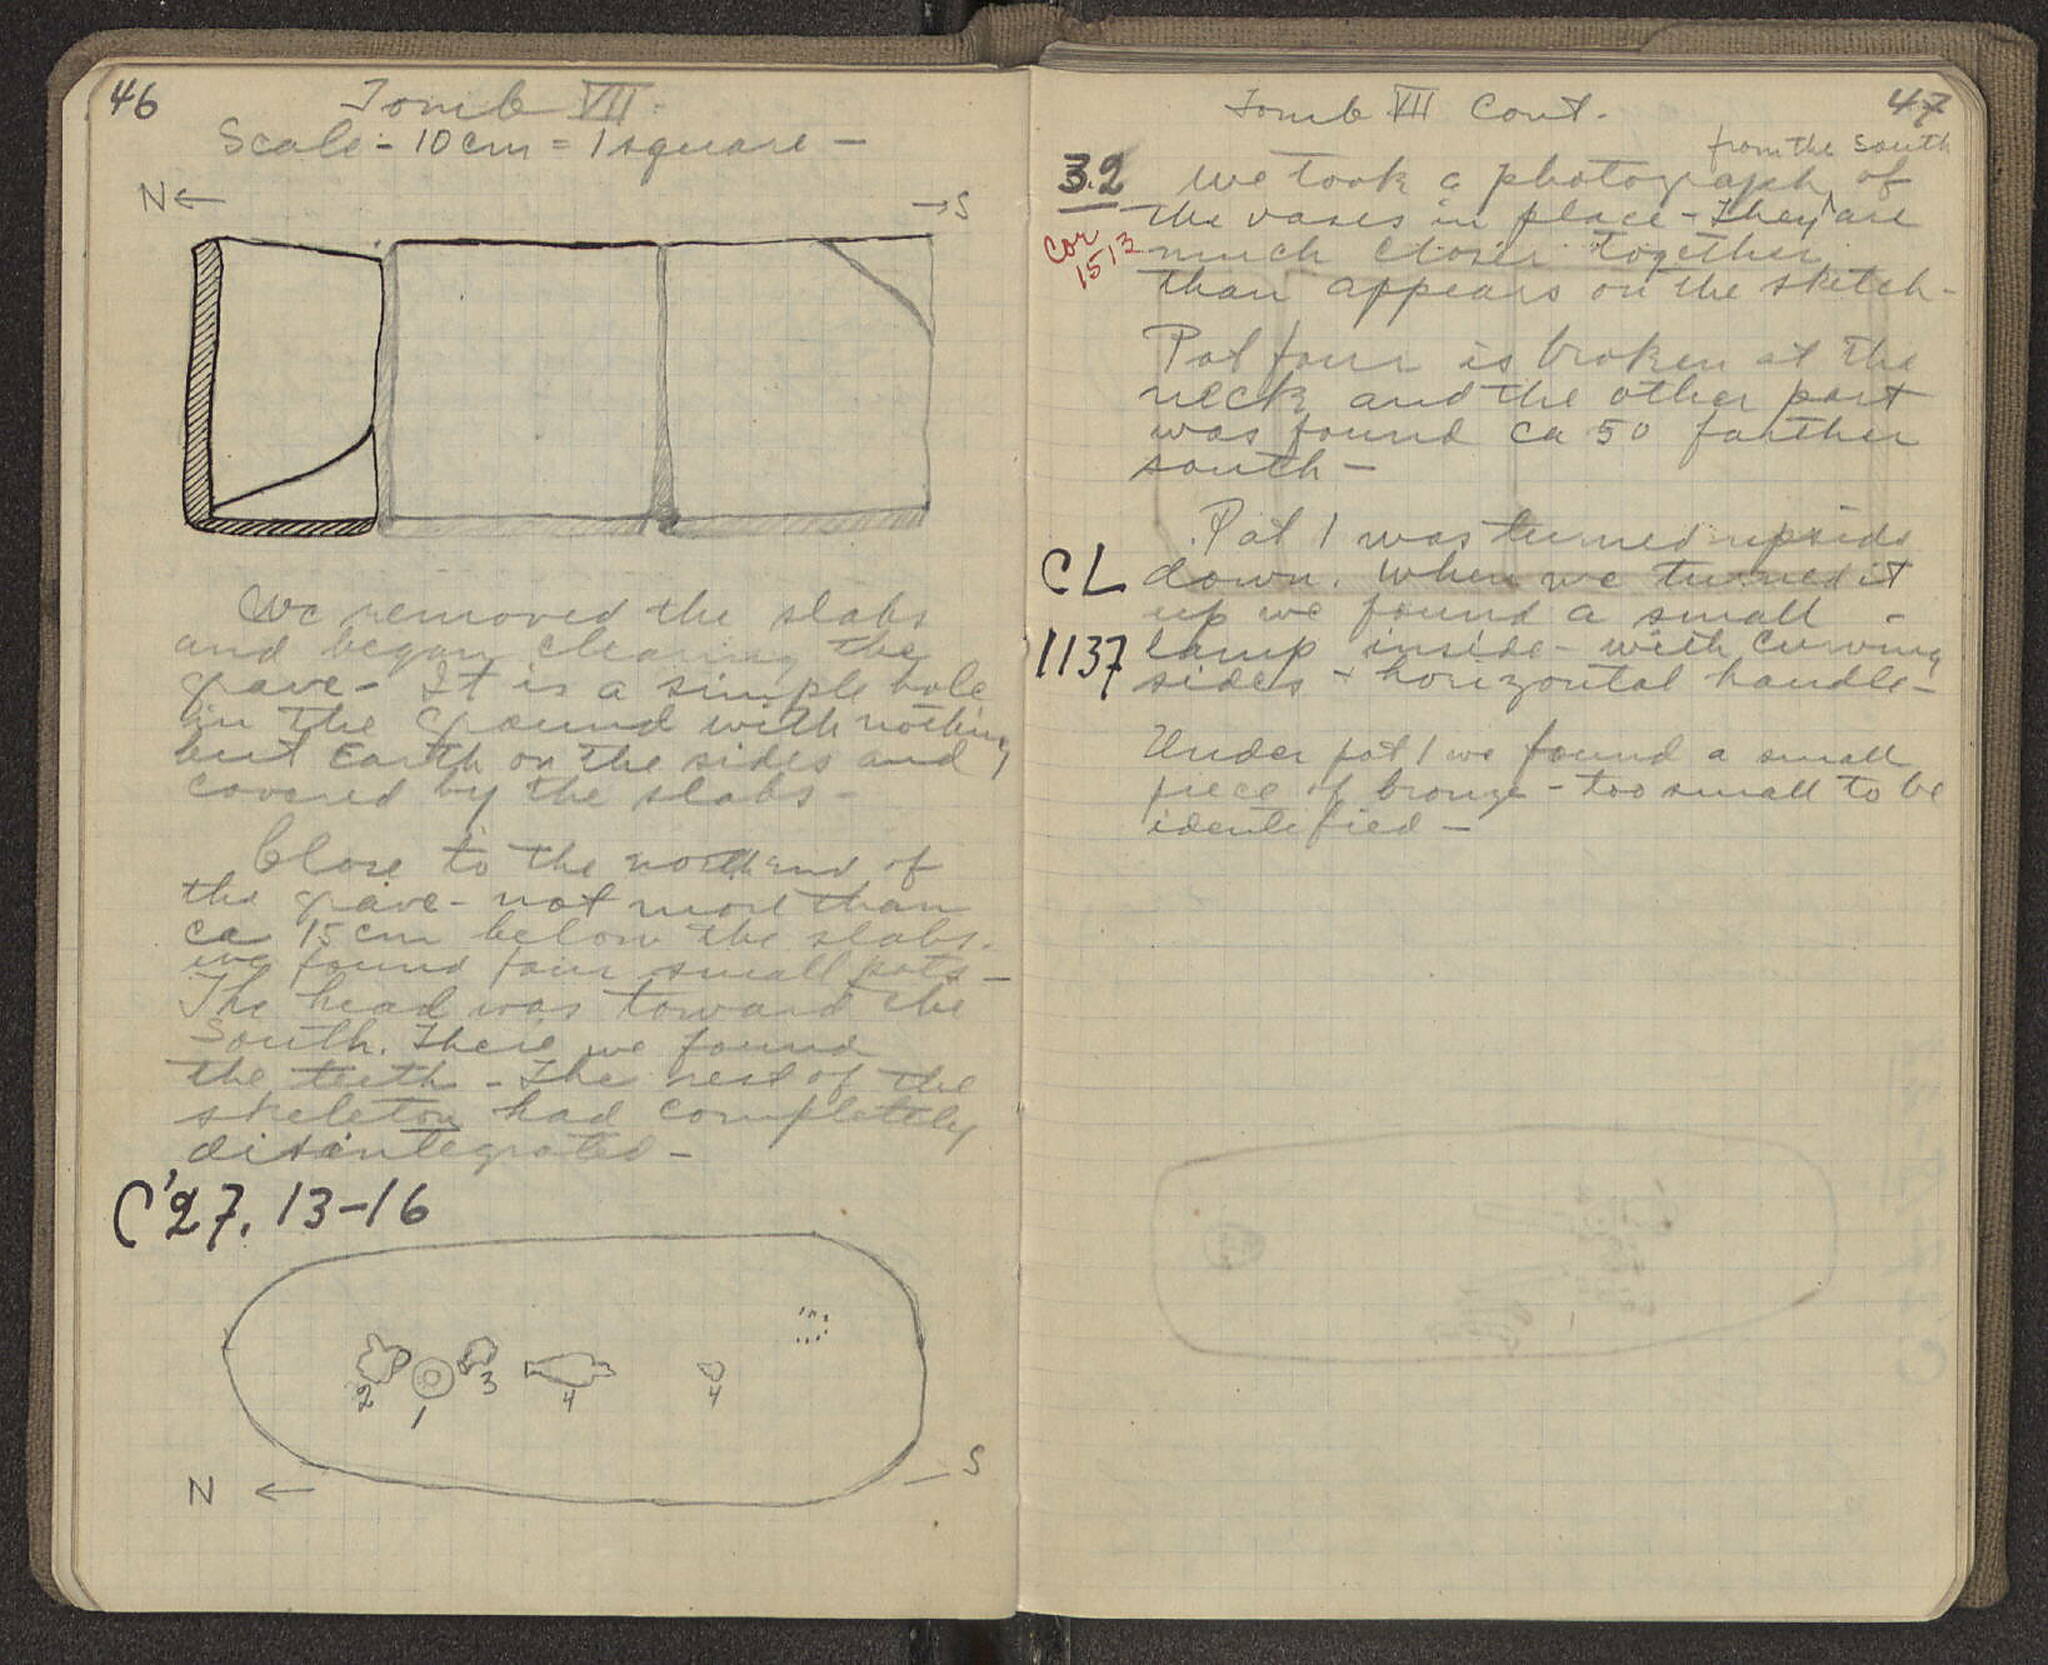 46
Tomb VII.
Scale - 10 cm = 1 square —
N ←
→ S
We removed the slabs
and began clearing the
grave - It is a simple hole
in the ground with nothing
but Earth on the sides and
covered by the slabs -
Close to the north end of
the grave - not more than
ca 15 cm below the slabs.
we found four small pots -
The head was toward the
South. There we found
the teeth - The rest of the
skeleton had completely
disintegrated -
C'27. 13-16
2
1
3
4
4
N ←
— S
47
Tomb VII Cont.
from the South
3.2 We took a photograph of
the vases in place - They are
Cor 1513
much closer together
than appears on the sketch -
Pot four is broken at the
neck and the other part
was found ca 50 farther
south -
Pot 1 was turned upside
CL
down. When we turned it
up we found a small -
1137
lamp inside - with curving
sides + horizontal handle -
Under pot 1 we found a small
piece of bronze - too small to be
identified -